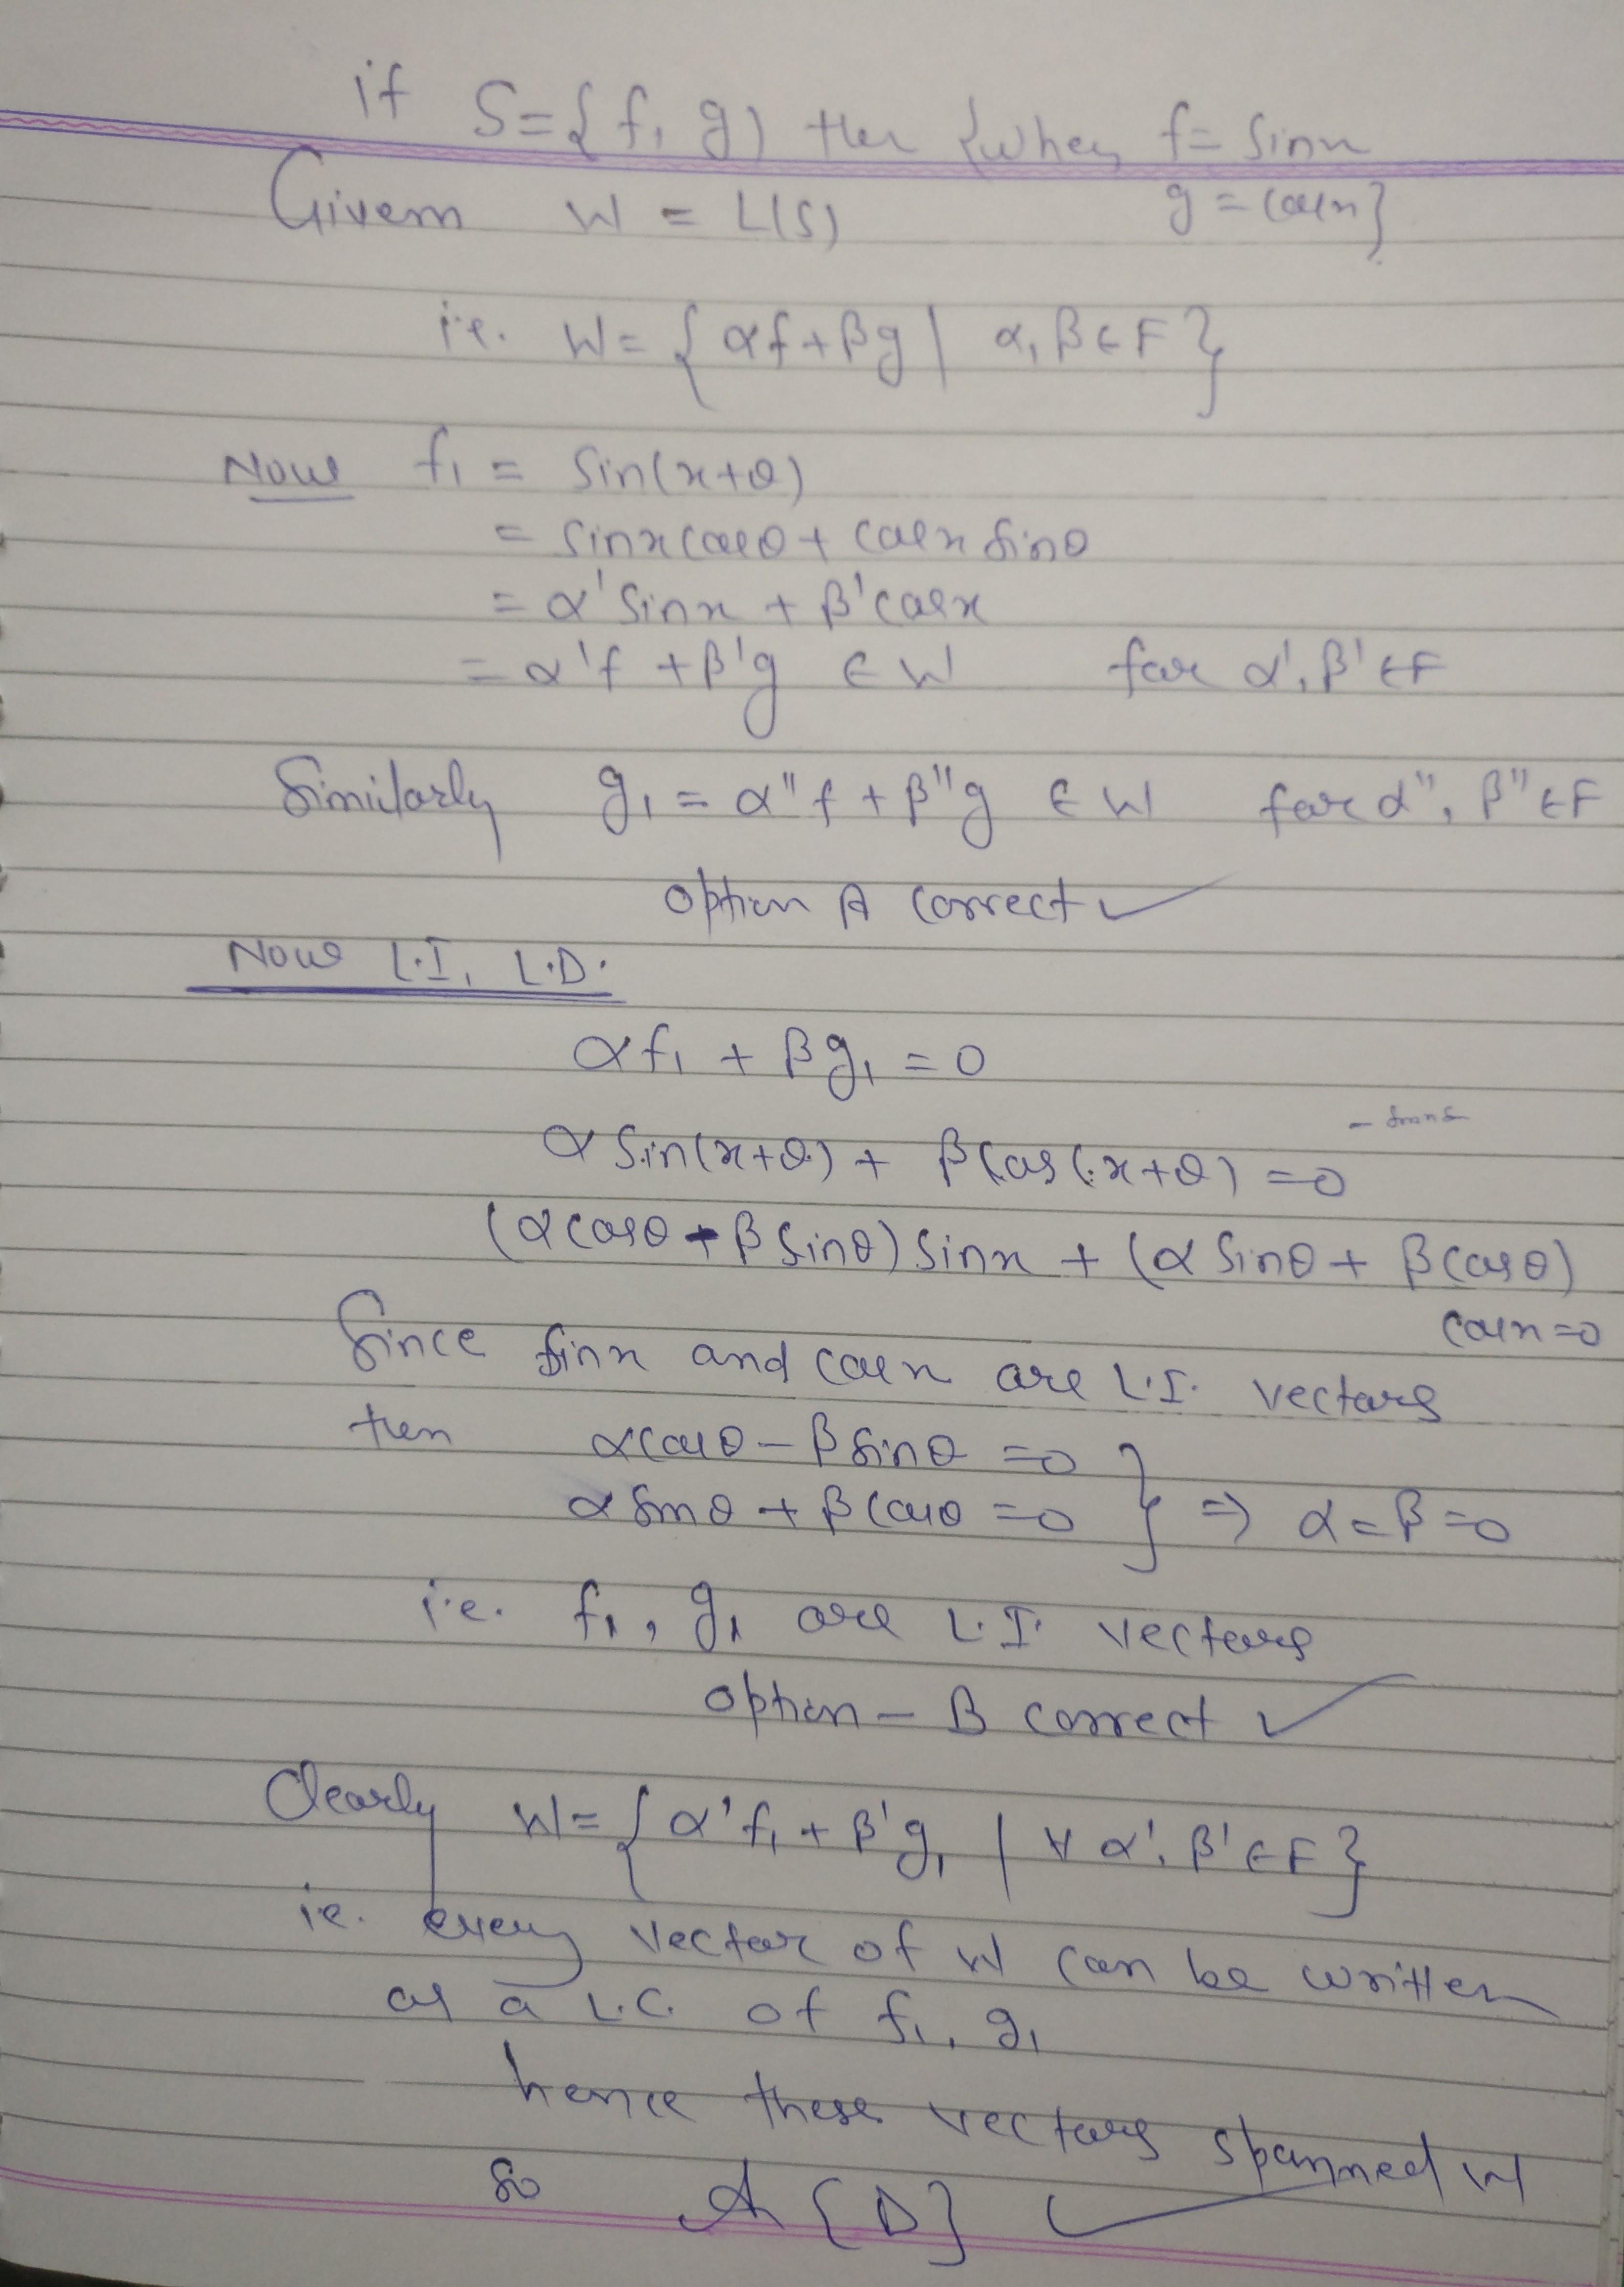 if S={f, g) then {when f= Sinx
Given W = L(S) g = cosx}
i.e. W= { αf+βg | α, β∈F }
Now f₁ = Sin(x+θ)
= Sinx cosθ + cosx Sinθ
= α' Sinx + β' cosx
= α'f + β'g ∈ W for α', β' ∈F
Similarly g₁ = α"f + β"g ∈ W for α", β" ∈F
option A correct ✓
Now L.I, L.D.
αf₁ + βg₁ = 0
α Sin(x+θ) + β Cos(x+θ) =0
(α cosθ - β Sinθ) Sinx + (α Sinθ + β cosθ)
cosx=0
Since Sinx and cosx are L.I. vectors
then αcosθ - β Sinθ =0
α Sinθ + β cosθ =0 } ⇒ α=β=0
i.e. f₁, g₁ are L.I. vectors
option - B correct ✓
Clearly W= { α'f₁ + β'g₁ | ∀ α', β'∈F}
ie. every vector of W can be written
as a L.C. of f₁, g₁
hence these vectors spanned W
So A {D} ✓